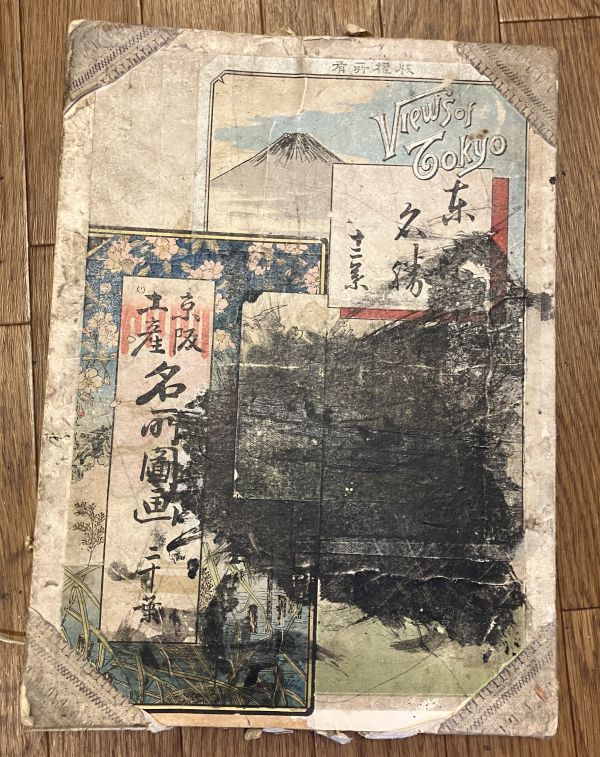 版權所有
Views of
Tokyo
東
名勝
十二景
京阪
土産
名所圖画
二十葉